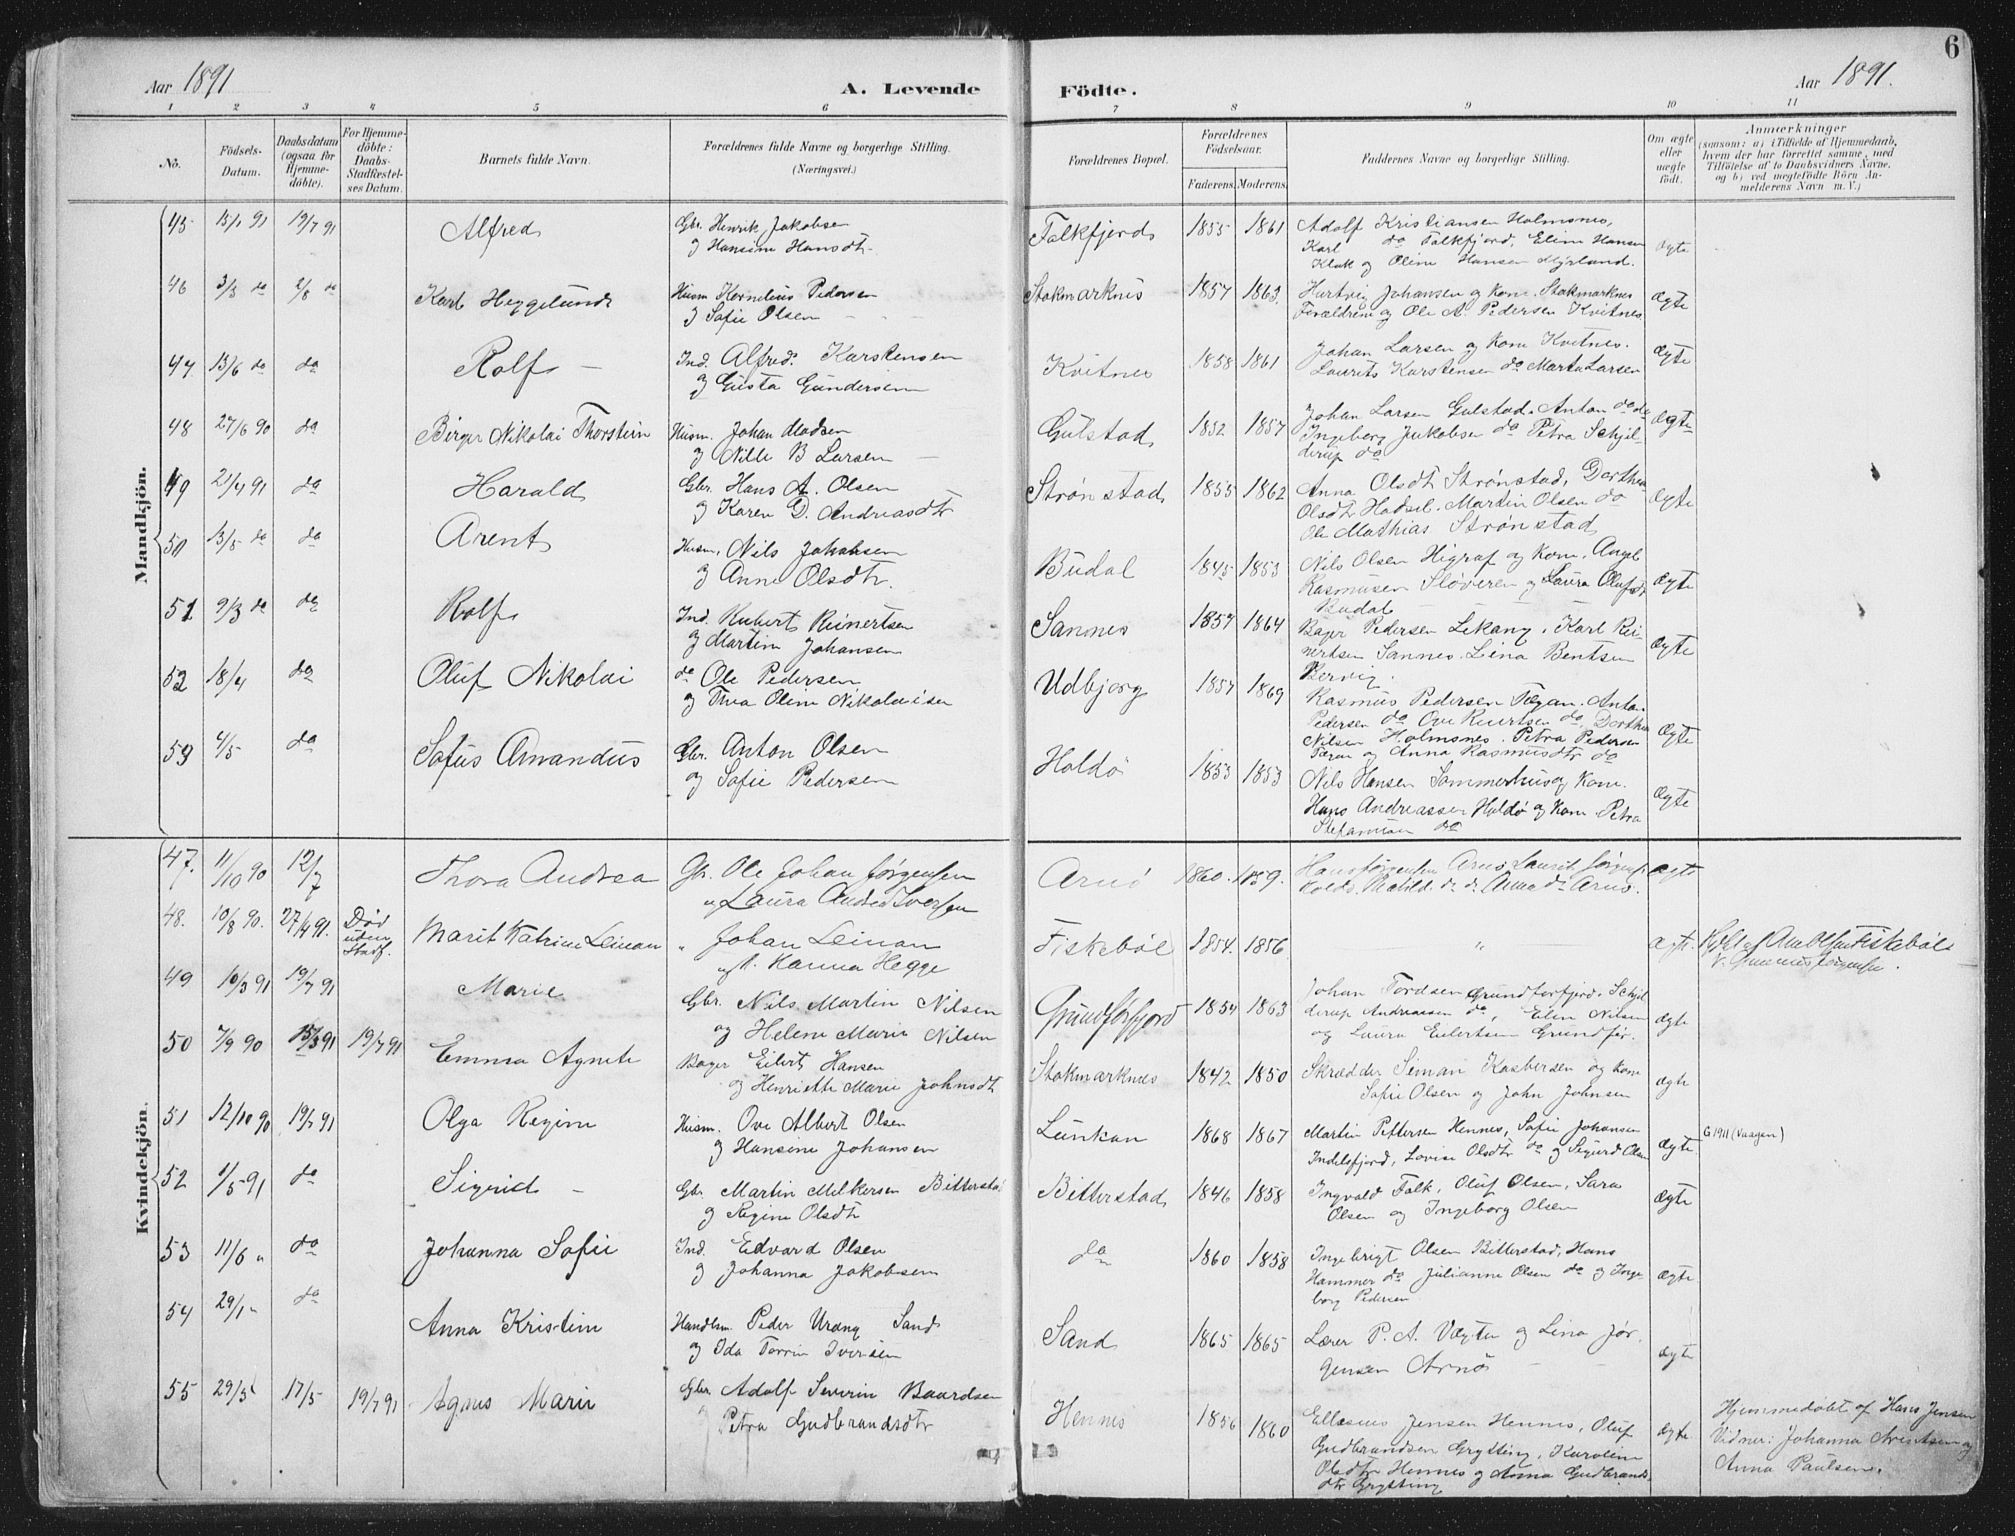 6
Aar 1891
A. Levende Födte.
Aar 1891.
1 2 3 4 5 6 7 8 9 10 11
No.
Födsels-Datum.
Daabsdatum (ogsaa for Hjemme-döbte).
For Hjemme-döbte: Daabs-Stadfæstel-ses Datum.
Barnets fulde Navn.
Forældrenes fulde Navne og borgerlige Stilling. (Næringsvei.)
Forældrenes Bopæl.
Forældrenes Födselsaar.
Faderens. Moderens.
Faddernes Navne og borgerlige Stilling.
Om ægte eller uægte födt.
Anmærkninger
(saasom: a) i Tilfælde af Hjemmedaab, hvem der har forrettet samme, med Tilföielse af to Daabsvidners Navne, og b) ved uægtefödte Börn Anmelderens Navn m. V.)
Mandkjön.
45 15/1 91 19/7 91 Alfred Gbr. Henrik Jakobsen Falkfjord 1855 1861 Adolf Kristiansen Holmsnes, ægte
og Hansine Hansdtr. Karl do Falkfjord, Eline Hansen
Klak og Oline Hansen Myrland.
46 3/3 do 2/8 do Karl Heggelund Husm Kornelius Pedersen Stokmarknes 1857 1863. Hartvig Johansen og Kone Stokmarknes ægte
og Sofie Olsen Forældrene og Ole A. Pedersen Kvitnes
47. 13/6 do do Rolf Ind. Alfred Karstensen Kvitnes 1858 1861 Johan Larsen og Kone Kvitnes. ægte
og Gusta Gundersen Laurits Karstensen do Marta Larsen
48 27/6 90 do Birger Nikolai Thorstein Husm. Johan Madsen Gulstad 1852 1857 Johan Larsen Gulstad. Anton do do ægte
og Nille B Larsen Ingeberg Jakobsen do Petra Schjel-
derup do
49 21/4 91 do Harald Gbr. Hans A. Olsen Strønstad 1855 1862 Anna Olsdtr Strønstad, Dorthea ægte
og Karen D. Andreasdtr Olsdtr Hadsel. Martin Olsen do
Ole Mathias Strønstad
50 13/5 do do Arent Husm. Nils Jakobsen Budal 1845 1853 Nils Olsen Higraf og Kone. Angel ægte
og Anne Olsdtr. Rasmusen Sløveren og Laura Olufsdtr
Budal
51 9/3 do do Rolf Ind. Rubert Reinertsen Sannes 1857 1864 Bager Pedersen Lekang. Karl Rei- ægte
og Martine Johansen nertsen Sannes. Lina Bentsen
Bervig.
52 18/4 do Oluf Nikolai do Ole Pedersen Udbjorg 1857 1869 Rasmus Pedersen Tegan. Anton ægte
og Thea Oline Nikolaisen Pedersen do Ove Kurtsen do, Dorthea
Nilsen Holmsnes. Petra Pedersen
og Anna Rasmusdtr do
53 4/5 do Sofus Amandus Gbr. Anton Olsen Holdø 1853 1853 Nils Hansen Sommerhus og Kone. ægte
og Sofie Pedersen Hans Andreassen Holdø og Kone. Petra
Stefanusen do
Kvindekjön.
47. 11/10 90 12/7 Thora Andrea Gbr. Ole Johan Jørgensen Arnø 1860. 1859. Hans Jørgensen Arnø, Laurits Jørgensen ægte
og Laura Iversen Matild. do do Anna do Arnø.
48. 10/8 90. 27/4 91. Død uden Stadf. Marit Katrine Leinan " Johan Leinan Fiskebøl 1854. 1856 " ægte.
Hanna Hegge
49 10/3 91 19/7 91 Marie Gbr. Nils Martin Nilsen Grundforfjord 1854 1863 Johan Tordsen Grundforfjord. Schjel ægte
og Helene Marie Nilsen derup Andreasen do, Elen Nilsen
og Laura Eilertsen Grundfor.
50 7/9 90 15/3 91 19/7 91 Emma Agnete Bager Eilert Hansen Stokmarknes 1842 1850 Skrædder Simon Kasbersen og Kone ægte
og Henriette Marie Johnsdtr Sofie Olsen og John Johnsen
51 12/10 90 19/7 91 Olga Regine Husm. Ove Albert Olsen Lunkan 1868 1867 Martin Pettersen Hennes, Sofie Johansen ægte G 1911 (Vaagen)
og Hansine Johansen Indelsfjord, Lovise Olsdtr do og Sigurd Olsen
52 1/5 91 do Sigrid Gbr. Martin Melkersen Bitterstad Bitterstad 1846 1858 Ingvald Falk, Oluf Olsen, Sara ægte
og Regine Olsdtr Olsen og Ingeborg Olsen
53 11/6 " do Johanna Sofie Ind. Edvard Olsen do 1860 1858 Ingebrigt Olsen Bitterstad, Hans ægte
og Johanna Jakobsen Hammer do Julianne Olsen do og Inge-
borg Pedersen
54 29/1 " do Anna Kristine Handlsm. Peder Urang Sand Sand 1865 1865 Lærer P. A. Vægter og Lina Jør- ægte
og Ida Torrin Iversen gensen Arnø
55 29/3 17/5 19/7 91 Agnes Marie Gbr. Adolf Severin Baardsen Hennes 1856 1860 Ellesius Jensen Hennes, Oluf ægte Hjemmedøbt af Hans Jensen
Petra Gudbrandsdtr Gudbrandsen Grytting, Karoline Vidner: Johanna Arentsen og
Olsdtr Hennes og Anna Gudbrands- Anna Paulsen.
dtr Grytting